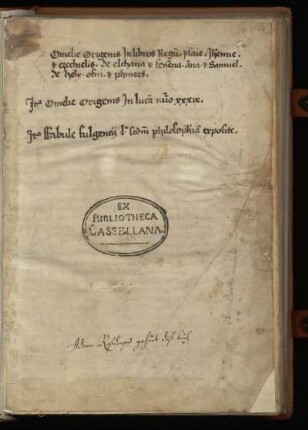 Omelie Origenis In libros Regũ. ysaie. Iheremie.
& ezechielis. de elchana & fenena. Ana & Samuel.
de hely. ofni. & phinees.
Itẽ Omelie Origenis In lucã nũo xxxix.
Itẽ ffabule fulgencij sedm philosophiã exposite.
EX
BIBLIOTHECA
CASSELLANA
gehört diß buch